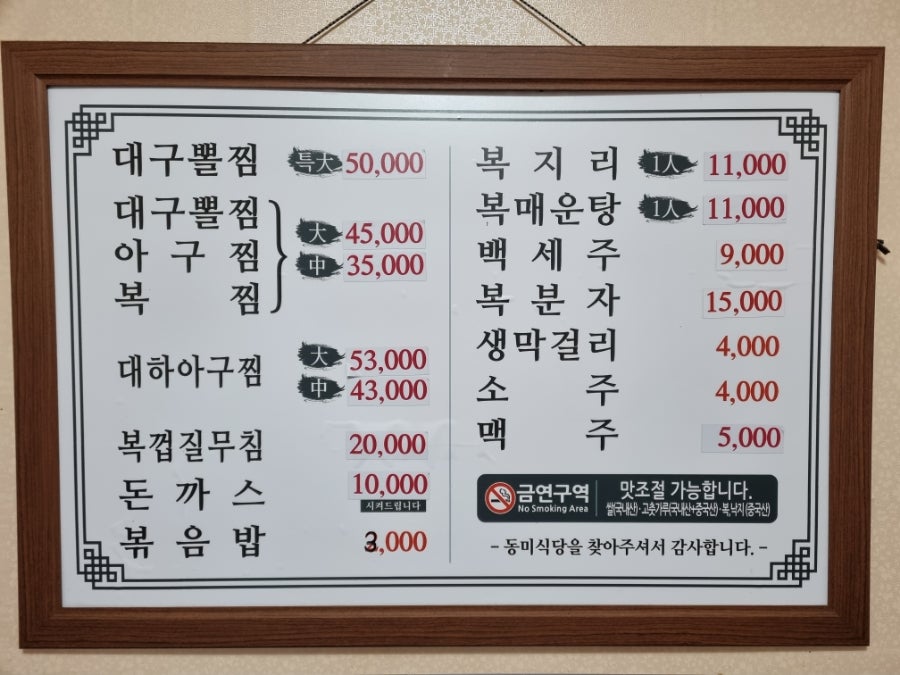 대구뽈찜 特大 50,000
대구뽈찜
아구찜
복찜
大 45,000
中 35,000
대하아구찜
大 53,000
中 43,000
복껍질무침 20,000
돈까스 10,000
시켜드립니다
볶음밥 3,000
복지리 1人 11,000
복매운탕 1人 11,000
백세주 9,000
복분자 15,000
생막걸리 4,000
소주 4,000
맥주 5,000
금연구역
No Smoking Area
맛조절 가능합니다.
쌀(국내산)·고춧가루(국내산+중국산)·복,낙지(중국산)
- 동미식당을 찾아주셔서 감사합니다. -